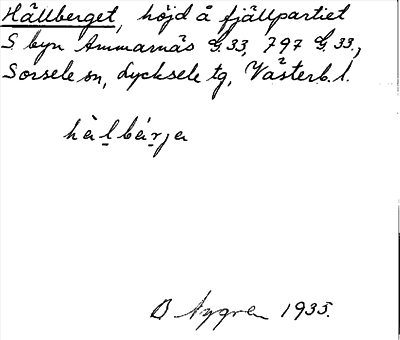 Hällberget, höjd å fjällpartiet
S. byn Ammarnäs G 33, 797 G 33.,
Sorsele sn, Lycksele tg, Västerb. l.
hàlbárja
B Nygren 1935.